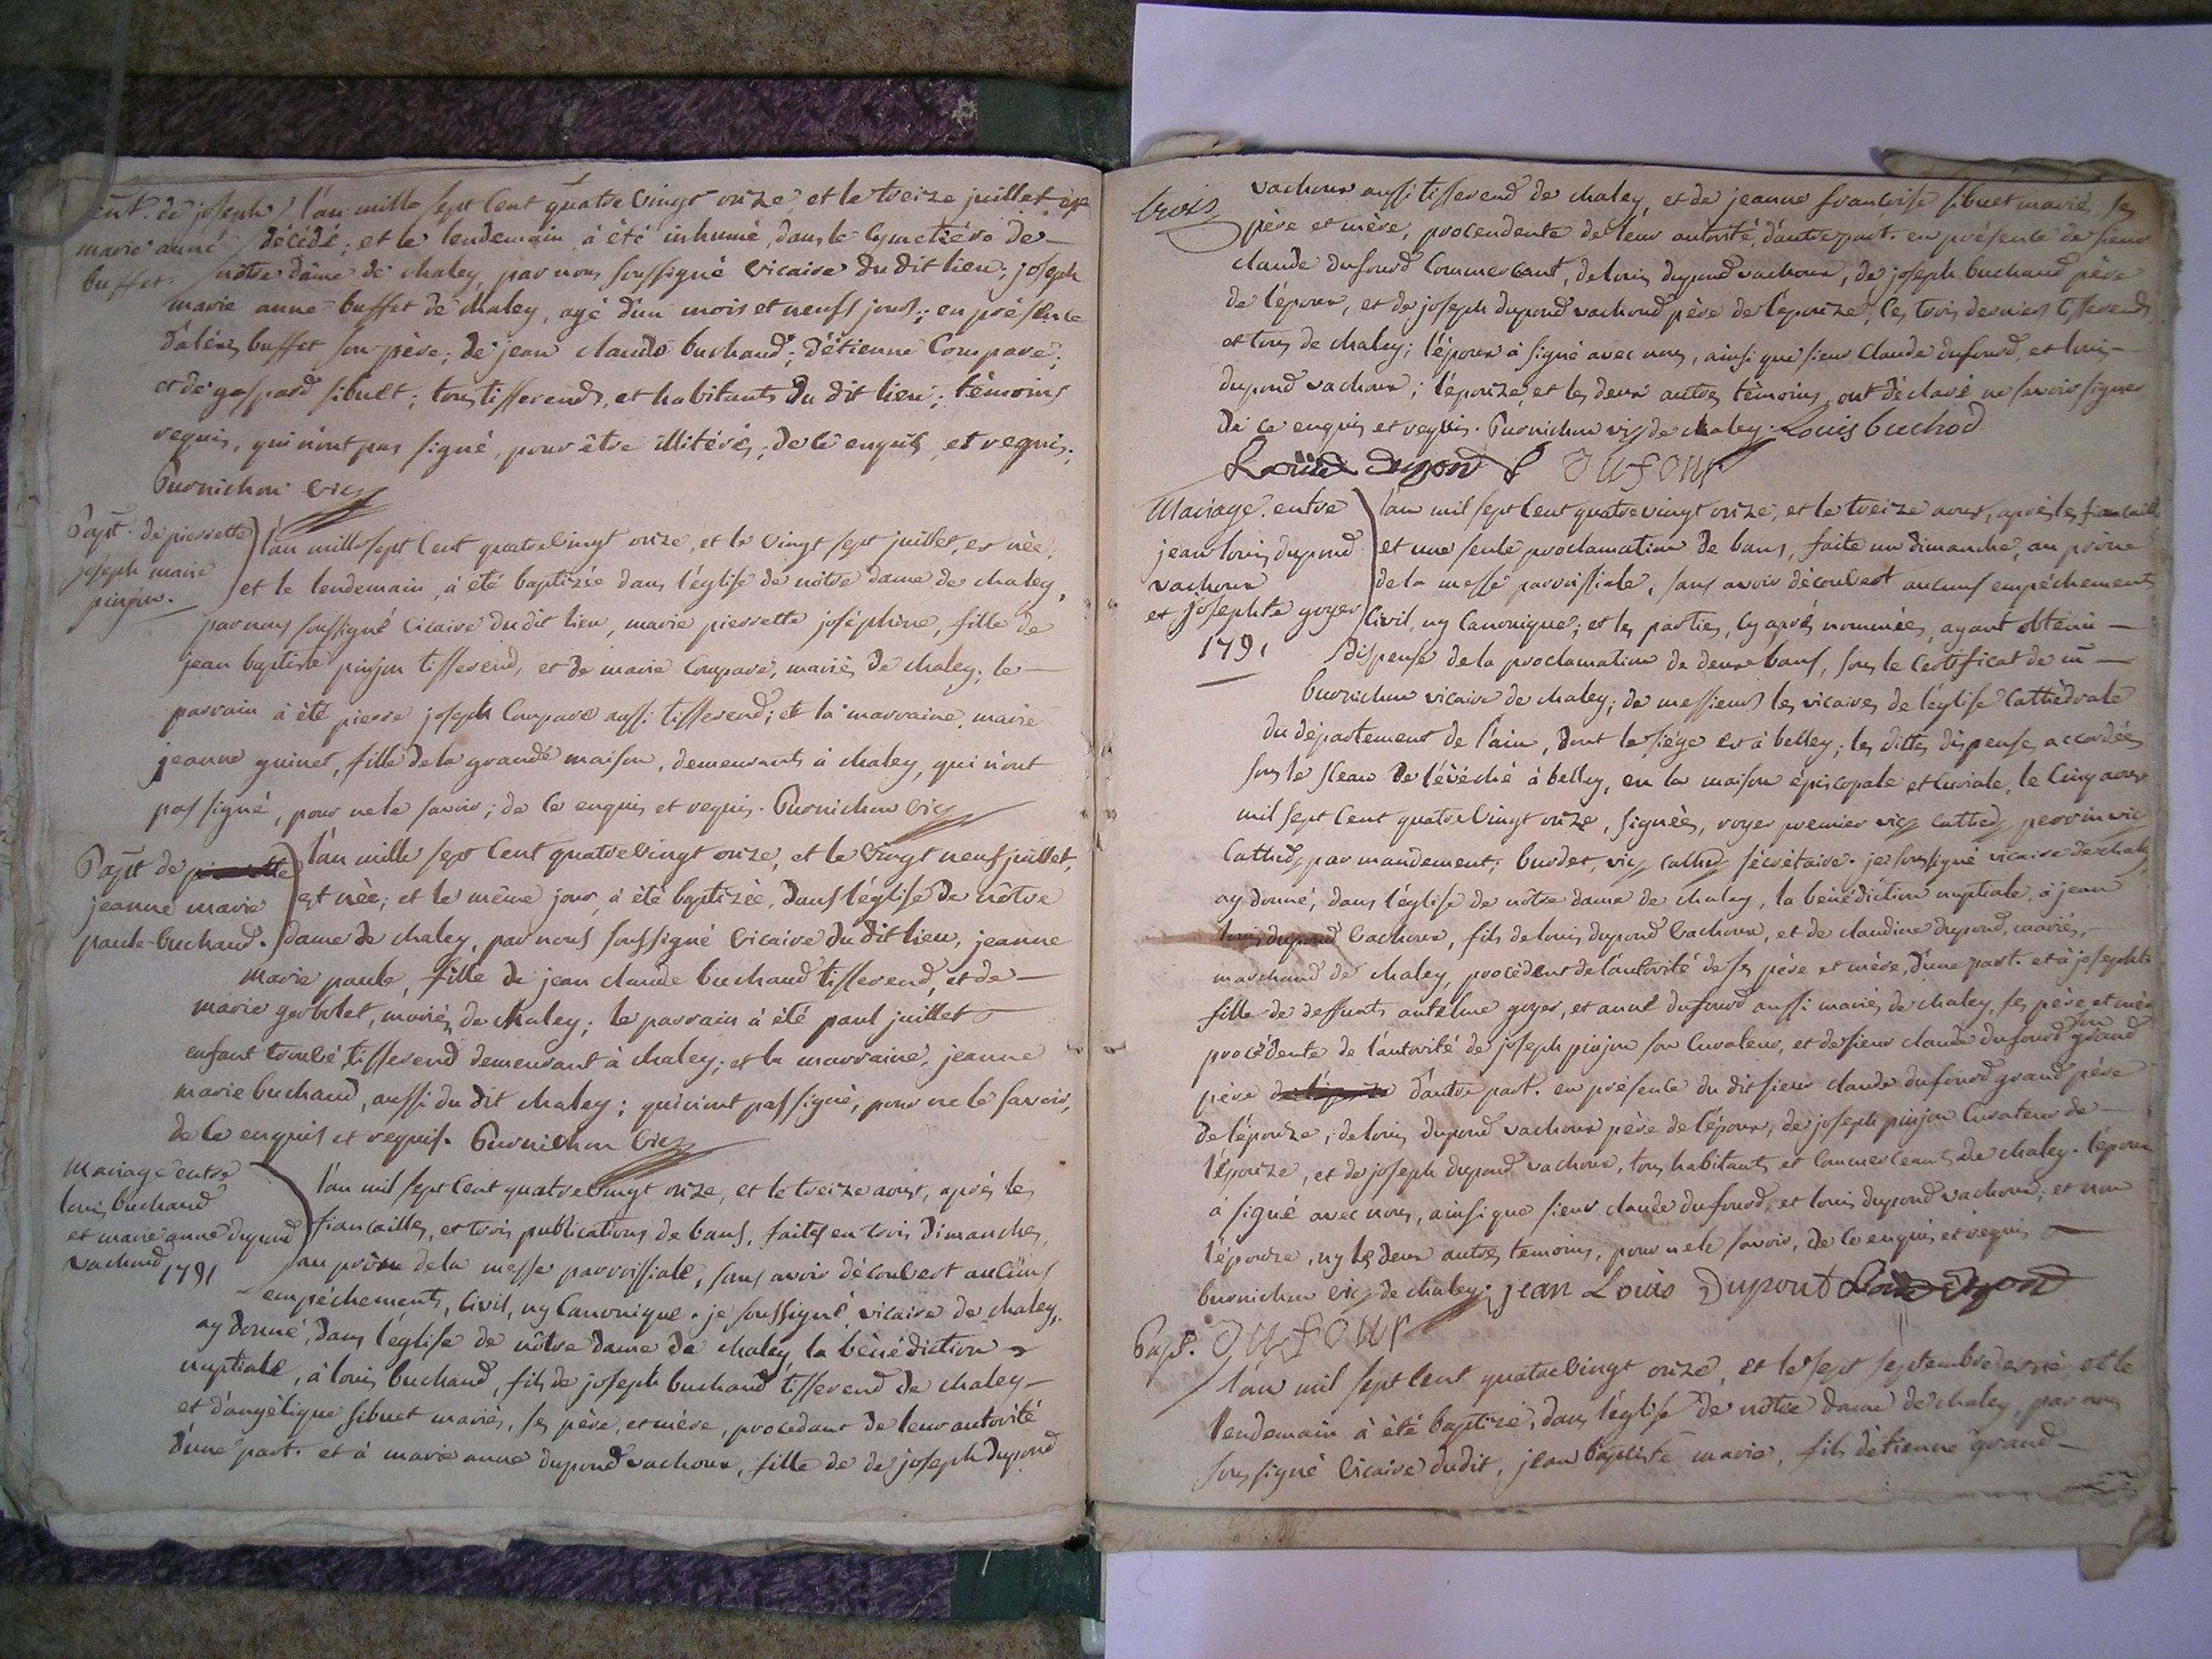 ent. de joseph l'an mille sept cent quatre vingt onze et le treize juillet, est
marie anne décédé; et le lendemain, à été inhumé, dans le cymetière de
buffet. nôtre dâme de chaley, par nous soussigné vicaire du dit lieu; joseph
marie anne buffet de chaley, agé d'un mois et neufs jours; en présence
buffet son père; de jean claude buchaud; d'étienne Compare;
et de gaspard sibuet; tous tisserends, et habitants du dit lieu; témoins
requis, qui n'ont pas signé, pour être illitérés; de ce enquis et requis.
Burnichon vic
Bapt. de pierrette l'an mille sept cent quatre vingt onze, et le vingt sept juillet, est née,
joseph marie et le lendemain, à été baptizée dans l'église de nôtre dame de chaley,
pinjon. par nous soussigné vicaire du dit lieu, marie pierrette joséphine, fille de
jean baptiste pinjon tisserend, et de marie Compare, mariés de chaley; le
parrain à été pierre joseph Compare aussi tisserend; et la marraine, marie
jeanne guinet, fille de la grande maison, demeurants à chaley, qui n'ont
pas signé, pour ne le savoir; de ce enquis et requis. Burnichon vic
Bapt de l'an mille sept cent quatre vingt onze, et le vingt neuf juillet,
jeanne marie est née; et le même jour, à été baptizée, dans l'église de nôtre
paule buchaud. dame de chaley, par nous soussigné vicaire du dit lieu, jeanne
marie paule, fille de jean claude buchaud tisserend, et de
marie mariés de chaley; le parrain à été paul juillet
enfant trouvé, tisserend demeurant à chaley; et la marraine, jeanne
marie buchaud, aussi du dit chaley; qui n'ont pas signé, pour ne le savoir,
de ce enquis et requis. Burnichon vic
Mariage entre l'an mil sept cent quatre vingt onze, et le treize aoust, après les
louis buchaud fiancailles, et trois publications de bans, faites en trois dimanches,
et marie anne dupond au prône de la messe parroissiale, sans avoir découvert aucuns
vachoud 1791 empéchements, civil, ny canonique. je soussigné vicaire de chaley,
ay donné, dans l'église de nôtre dame de chaley, la bénédiction
nuptiale, à louis buchaud, fils de joseph buchaud tisserend de chaley
et d'angélique sibuet mariés, ses père et mère, procedant de leur autorité
d'une part. et à marie anne dupond vachoux, fille de de joseph dupond
trois vachoux aussi tisserend de chaley, et de jeanne francoise sibuet mariés, ses
père et mère, procendente de leur autorité, d'autre part. en présence de sieur
claude dufourd commercant, de louis dupond vachoux, de joseph buchaud père
de l'époux, et de joseph dupond vachoud père de l'épouze; les trois derniers tisserends
et tous de chaley; l'époux à signé avec nous, ainsi que sieur claude dufourd, et louis
dupond vachoux; l'épouze, et les deux autres témoins, ont déclaré ne savoir signer
de ce enquis et requis. Burnichon vic de chaley. Louis buchod
Louis dupond Dufour
Mariage. entre l'an mil sept cent quatre vingt onze, et le treize aoust, après les fiancaill
jean louis dupond et une seule proclamation de bans, faite un dimanche, au prône
vachoux de la messe parroissiale, sans avoir découvert aucuns empéchements
et josephte goyer civil, ny canonique; et les parties, cy après nommées, ayant obtenu
1791 dispense de la proclamation de deux bans, sous le certificat de
burnichon vicaire de chaley; de messieurs les vicaires de l'église cathédrale
du département de l'ain, dont le siége est à belley; les dittes dispenses accordées
sous le sceau de l'évéché à belley, en la maison épiscopale et curiale, le cinq aoust
mil sept cent quatre vingt onze, signées, royer premier vic cathed, perrin vic
cathed, par mandement; burdet, vic cathed sécrétaire. je soussigné vicaire de chaley
ay donné, dans l'église de nôtre dame de chaley, la bénédiction nuptiale, à jean
louis dupond vachoux, fils de louis dupond vachoux, et de claudine dupond, mariés,
marchand de chaley, procèdent de l'autorité de ses père et mère, d'une part. et à josephte
fille de deffunts antelme goyer, et anne dufourd aussi mariés de chaley, ses père et mère
procèdente de l'autorité de joseph pinjon son curateur, et de sieur claude dufourd son grand
père d'autre part. en présence du dit sieur claude dufourd grand père
de l'épouze; de louis dupond vachoux père de l'époux, de joseph pinjon curateur de
l'épouze, et de joseph dupond vachoux, tous habitants et commerceants de chaley. l'époux
à signé avec nous, ainsi que sieur claude dufourd, et louis dupond vachoux; et non
l'épouze, ny les deux autres temoins, pour ne le savoir, de ce enquis et requis
burnichon vic de chaley. jean Louis Dupont Louis dupond
Bapt. Dufour
l'an mil sept cent quatre vingt onze, et le sept septembre est né, et le
lendemain à été baptizé, dans l'église de nôtre dame de chaley, par nous
soussigné vicaire dudit, jean baptiste marie, fils d'étienne grand